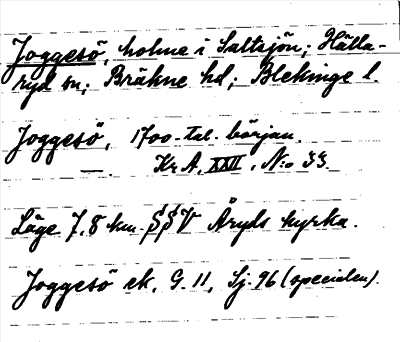 Joggesö, holme i Saltsjön; Hälla-
ryd sn; Bräkne hd; Blekinge l.
Joggesö, 1700-tal. början.
— Kr A, XXII, N:o 33
Läge 7,8 km SSV Åryds kyrka.
Joggesö ek. G. 11, Sj. 96 (specialen).